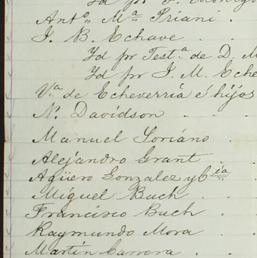 Yd por
Anto. Ma. Priani . .
J. B. Echave . .
Yd por Testa. de D. M
Yd por J. M. Eche
Va. de Echeverría é hijos
N. Davidson . . . .
Manuel Soriano . .
Alejandro Grant . .
Agüero Gonzalez y Cia . .
Miguel Buch . . .
Francisco Buch . . .
Raymundo Mora . .
Martin Carrera . .